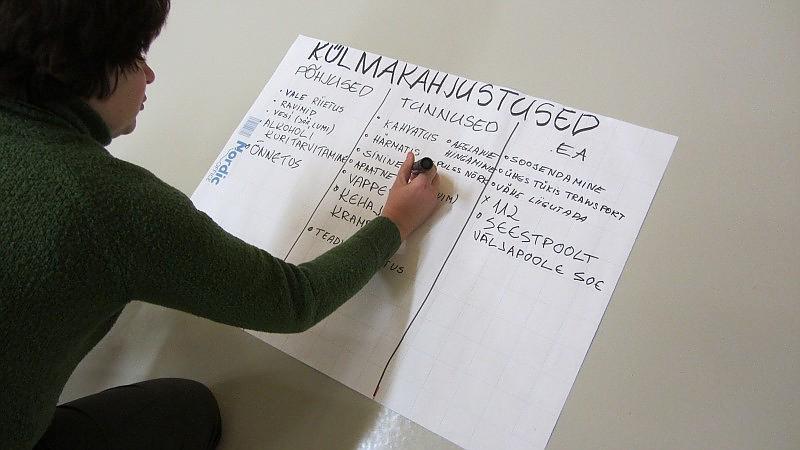 KÜLMAKAHJUSTUSED
PÕHJUSED
• VALE RIIETUS
• RAVIMID
• VESI (JÄÄ, LUMI)
• ALKOHOLI
KURITARVITAMINE
• ÕNNETUS
Nordic
TUNNUSED
• KAHVATUS
• HARMATUS
• SININE
• APAATNE
• AEGLANE
HINGAMINE
• PULSS NÕRK
EA
• SOOJENDAMINE
• ÜHES TÜKIS TRANSPORT
• VÄHE LIIGUTADA
× 112
• SEESTPOOLT
VÄLJAPOOLE SOE